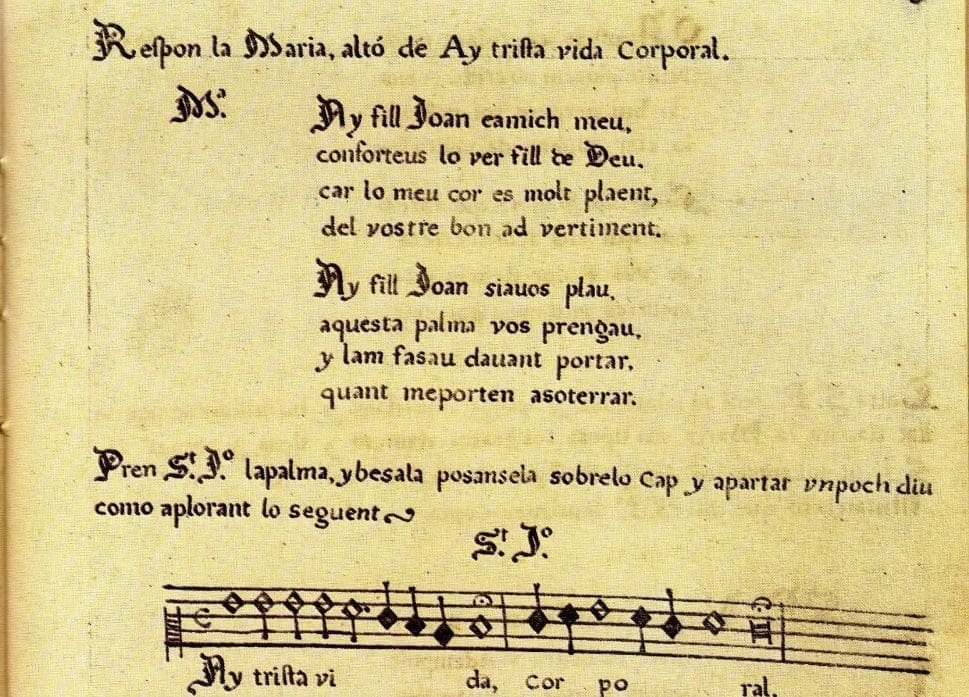 Reſpon la Maria, altó de Ay triſta vida Corporal.
Mª.
Ay fill Joan eamich meu,
conforteus lo ver fill de Deu.
car lo meu cor es molt plaent,
del vostre bon ad vertiment.
Ay fill Joan siauos plau,
aquesta palma vos prengau,
y lam fasau dauant portar,
quant meporten asoterrar.
Pren St. Jº lapalma, ybesala posansela sobrelo Cap y apartar vnpoch diu
como aplorant lo seguent
St. Jº
Ay triſta vi da, Cor po ral.